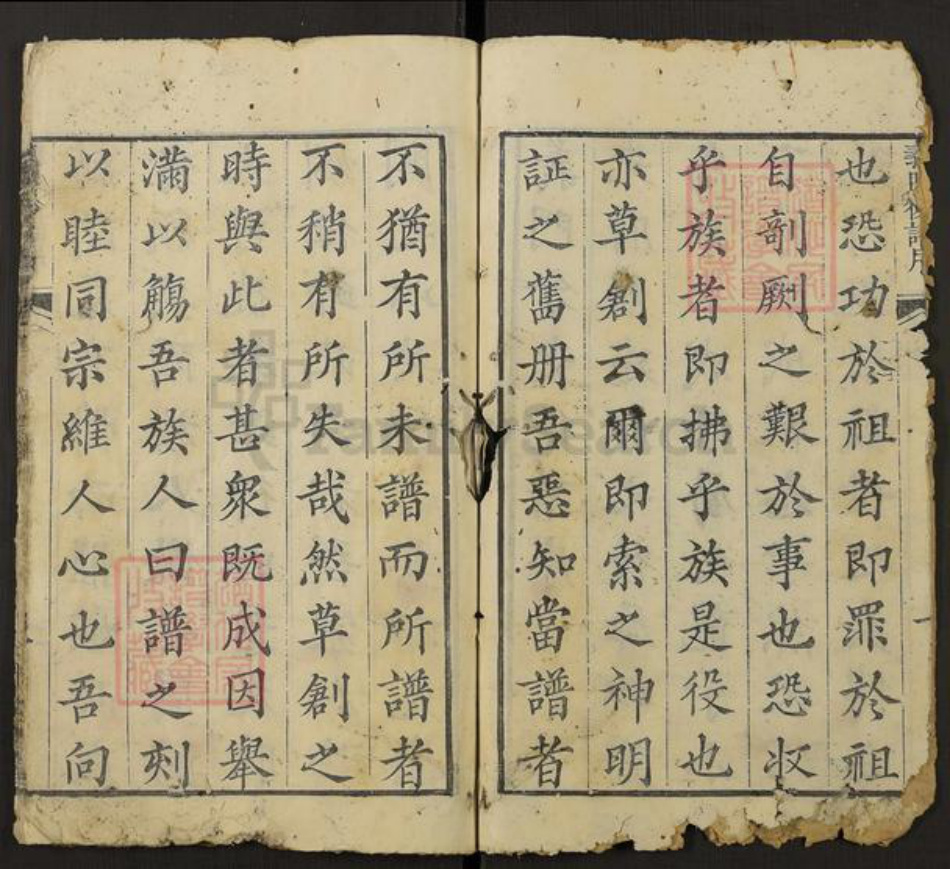 也恐功於祖者即罪於祖
自剖劂之艱於事也恐収
乎族者即拂乎族是役也
亦草創云爾即索之神明
証之舊册吾惡知當譜者
不猶有所未譜而所譜者
不稍有所失哉然草創之
時與此者甚衆既成因舉
滿以觴吾族人曰譜之刻
以睦同宗維人心也吾向